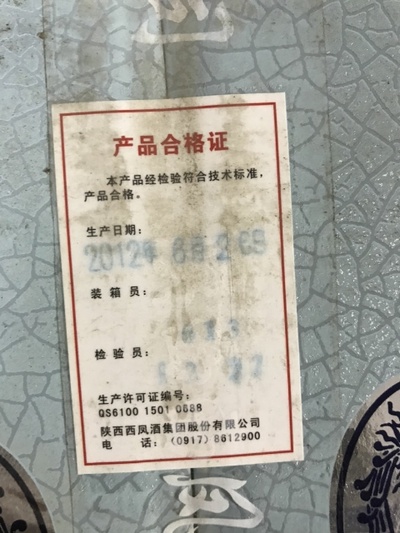 产品合格证
本产品经检验符合技术标准,
产品合格。
生产日期:
2012年 6月2
装箱员:
检验员:
生产许可证编号:
QS6100 1501 0688
陕西西凤酒集团股份有限公司
电 话: (0917) 8612900